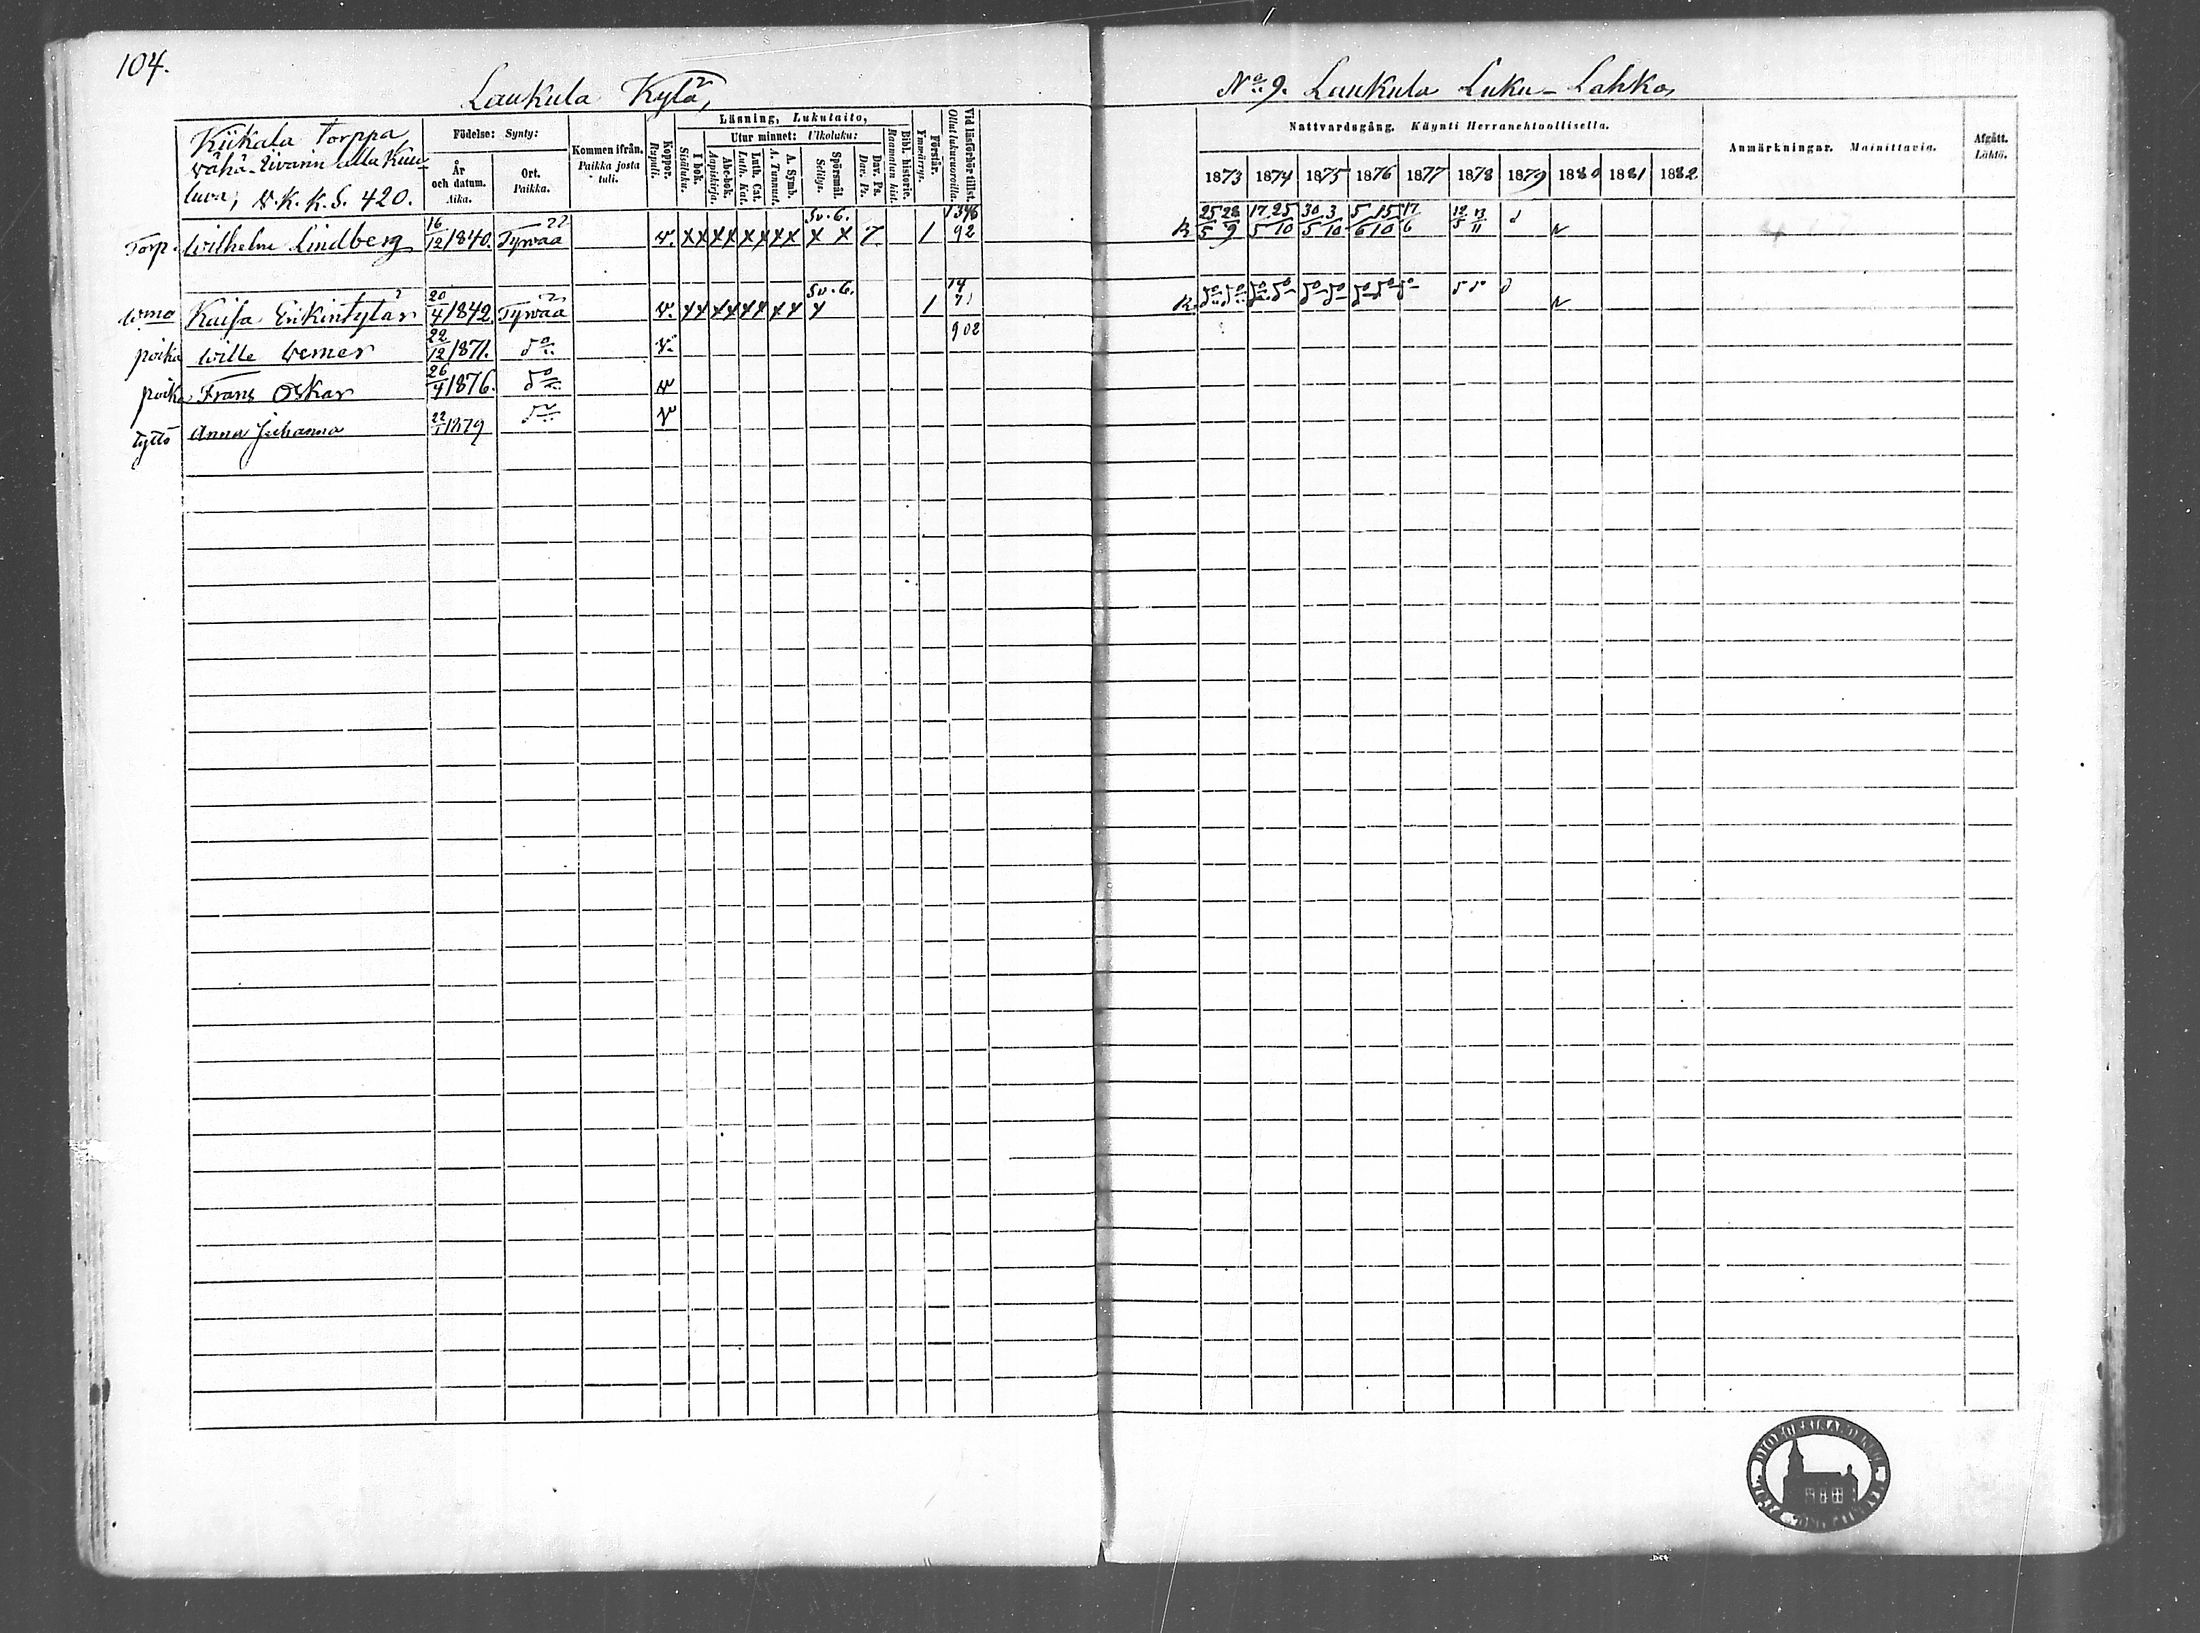 104.
Laukula Kylä,
No 9. Laukula Luku-Lahko,
Kiikala Torppa
Vähä-Eivarin alla Kuu-
luva, V.K.K.S. 420.
Födelse: Synty:
År och datum. Aika.
Ort. Paikka.
Kommen ifrån. Paikka josta tuli.
Koppor. Rupuli.
Läsning, Lukutaito,
I bok. Sisäluku.
Utur minnet: Ulkoluku:
Abc-bok. Aapiskirja.
Luth. Cat. Luth. Kat.
A. Symb. A. Tunnust.
Spörsmål. Selitys.
Dav. Ps. Dav. Ps.
Bibl. historie. Raamatun hist.
Förstår. Ymmärrys.
Vid läsförhör tillst. Ollut lukuvuoroilla.
Nattvardsgång. Käynti Herranehtoollisella.
1873 1874 1875 1876 1877 1878 1879 1880 1881 1882
Anmärkningar. Mainittavia.
Afgått. Lähtö.
Torp. Wilhelm Lindberg 16/12 1840. Tyrwää v. Sv. 6. 7 1 92 R 25/5 28/9 17/5 25/10 30/5 3/10 5/6 15/10 17/6 12/5 13/11
wmo Kaisa Erkintytär 20/4 1842. Tyrwää v. Sv. 6. 1 R
poika Wille Verner 22/12 1871. do v. 902
poika Frans Oskar 26/4 1876. do v
tyttö Anna Johanna 22/1 1879 do v